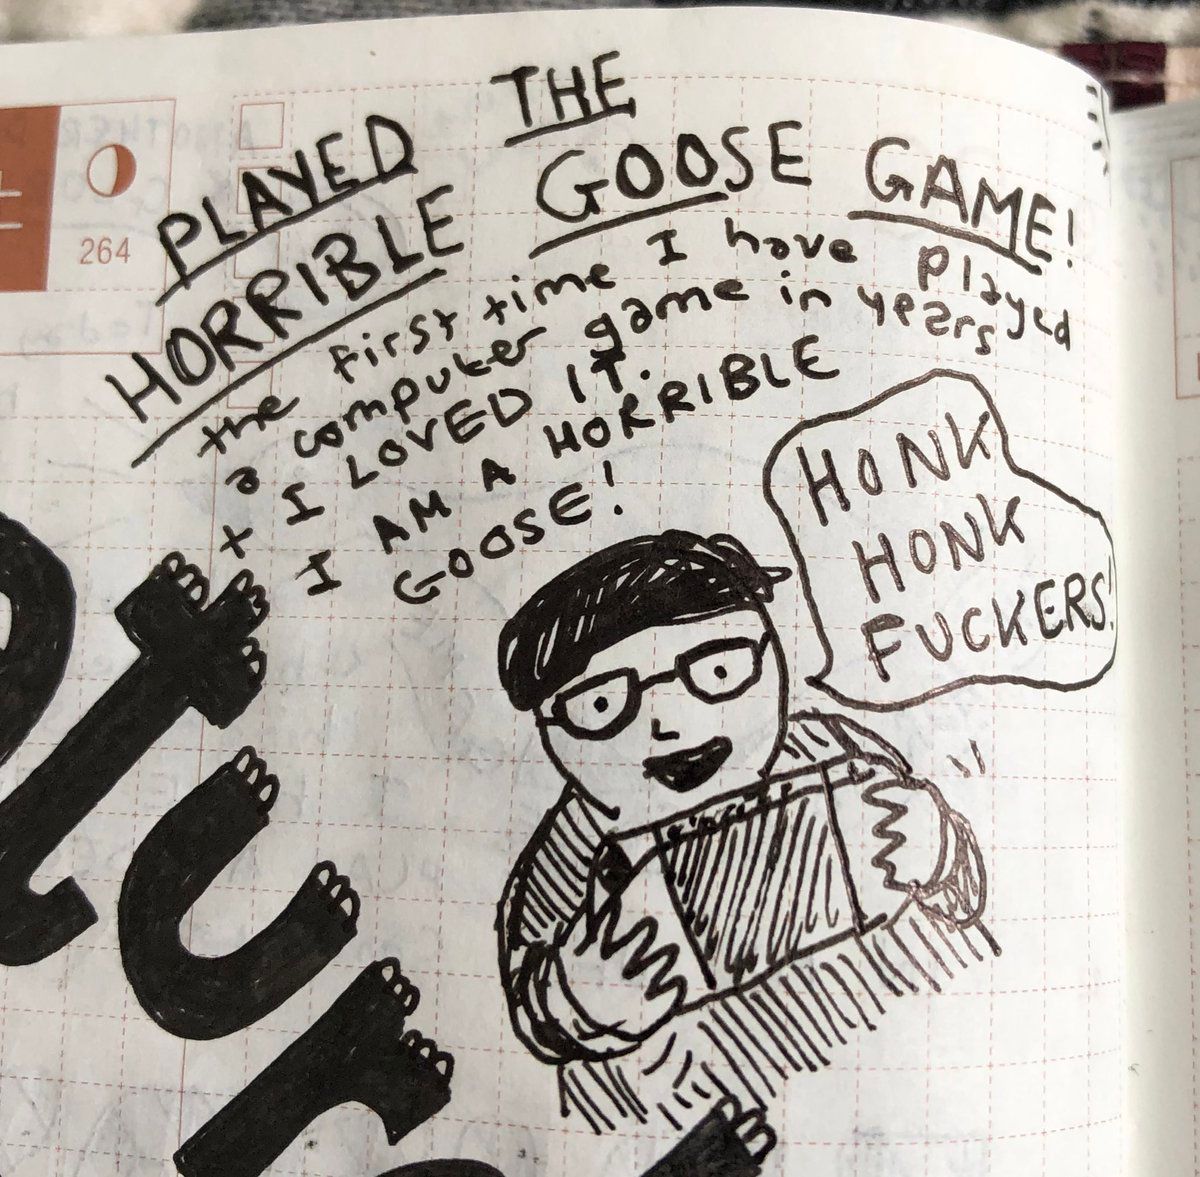 264
PLAYED THE
HORRIBLE GOOSE GAME!
the first time I have played
a computer game in years
+ I LOVED IT.
I AM A HORRIBLE
GOOSE!
HONK
HONK
FUCKERS!